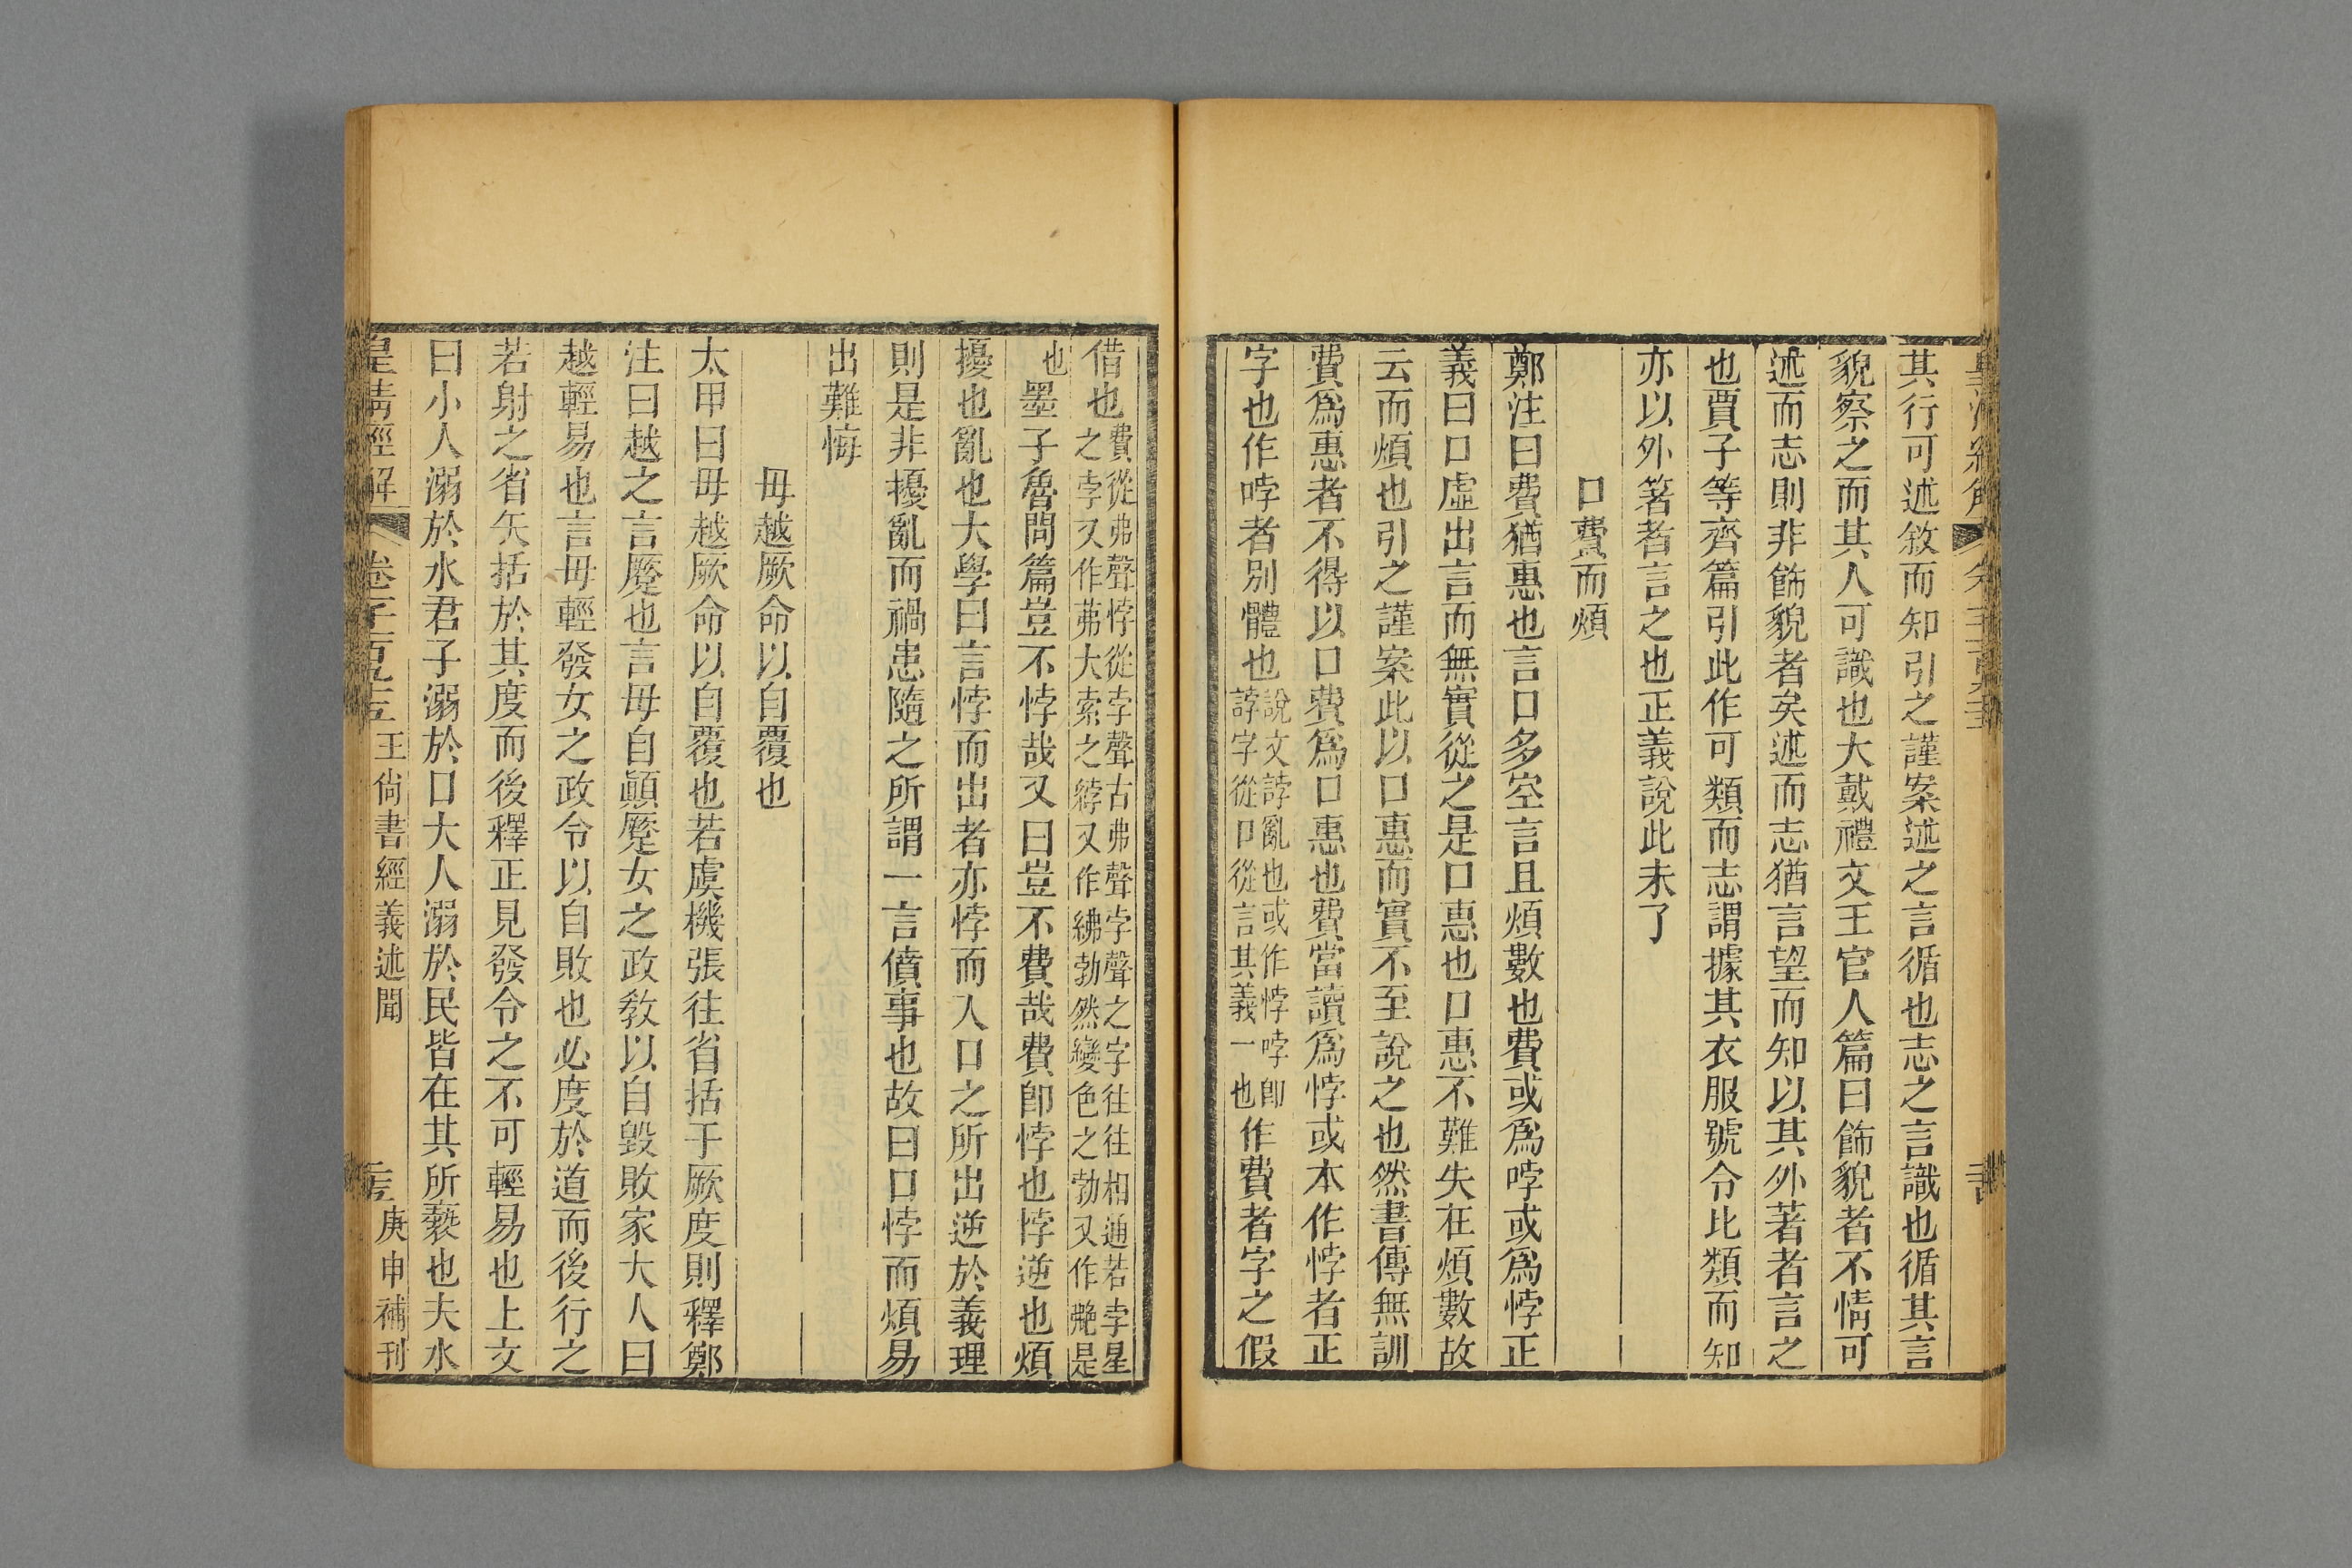 其行可述敘而知引之謹案述之言循也志之言識也循其言
貌察之而其人可識也大戴禮文王官人篇曰飾貌者不情可
述而志則非飾貌者矣述而志猶言望而知以其外著者言之
也賈子等齊篇引此作可類而志謂據其衣服號令比類而知
亦以外箸者言之也正義說此未了
口費而煩
鄭注曰費猶惠也言口多空言且煩數也費或為哱或為悖正
義曰口虛出言而無實從之是口惠也口惠不難失在煩數故
云而煩也引之謹案此以口惠而實不至說之也然書傳無訓
費為惠者不得以口費為口惠也費當讀為悖或本作悖者正
字也作哱者別體也說文誖亂也或作悖哱卽
誖字從口從言其義一也
作費者字之假
借也費從弗聲悖從孛聲古弗聲孛聲之字往往相通若孛星
之孛又作茀大索之綍又作紼勃然變色之勃又作艴是
也
墨子魯問篇豈不悖哉又曰豈不費哉費卽悖也悖逆也煩
擾也亂也大學曰言悖而出者亦悖而入口之所出逆於義理
則是非擾亂而禍患隨之所謂一言僨事也故曰口悖而煩易
出難悔
毋越厥命以自覆也
太甲曰毋越厥命以自覆也若虞機張往省括于厥度則釋鄭
注曰越之言蹷也言毋自顚蹷女之政敎以自毀敗家大人曰
越輕易也言毋輕發女之政令以自敗也必度於道而後行之
若射之省矢括於其度而後釋正見發令之不可輕易也上文
曰小人溺於水君子溺於口大人溺於民皆在其所褻也夫水
皇清經解 卷千百九十三 王尙書經義述聞 庚申補刊